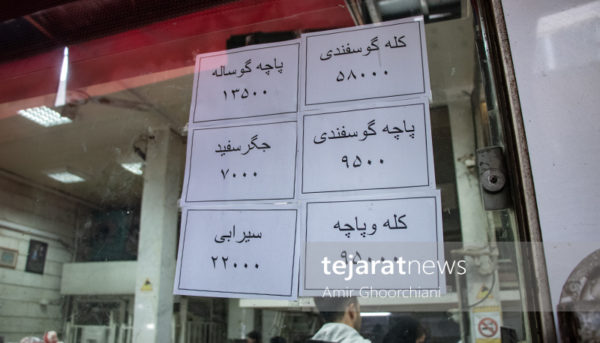 کله گوسفندی
۵۸۰۰۰
پاچه گوساله
۱۳۵۰۰
پاچه گوسفندی
۹۵۰۰
جگرسفید
۷۰۰۰
کله وپاچه
۹۵۰۰۰
سیرابی
۲۲۰۰۰
tejaratnews
Amir Ghoorchiani